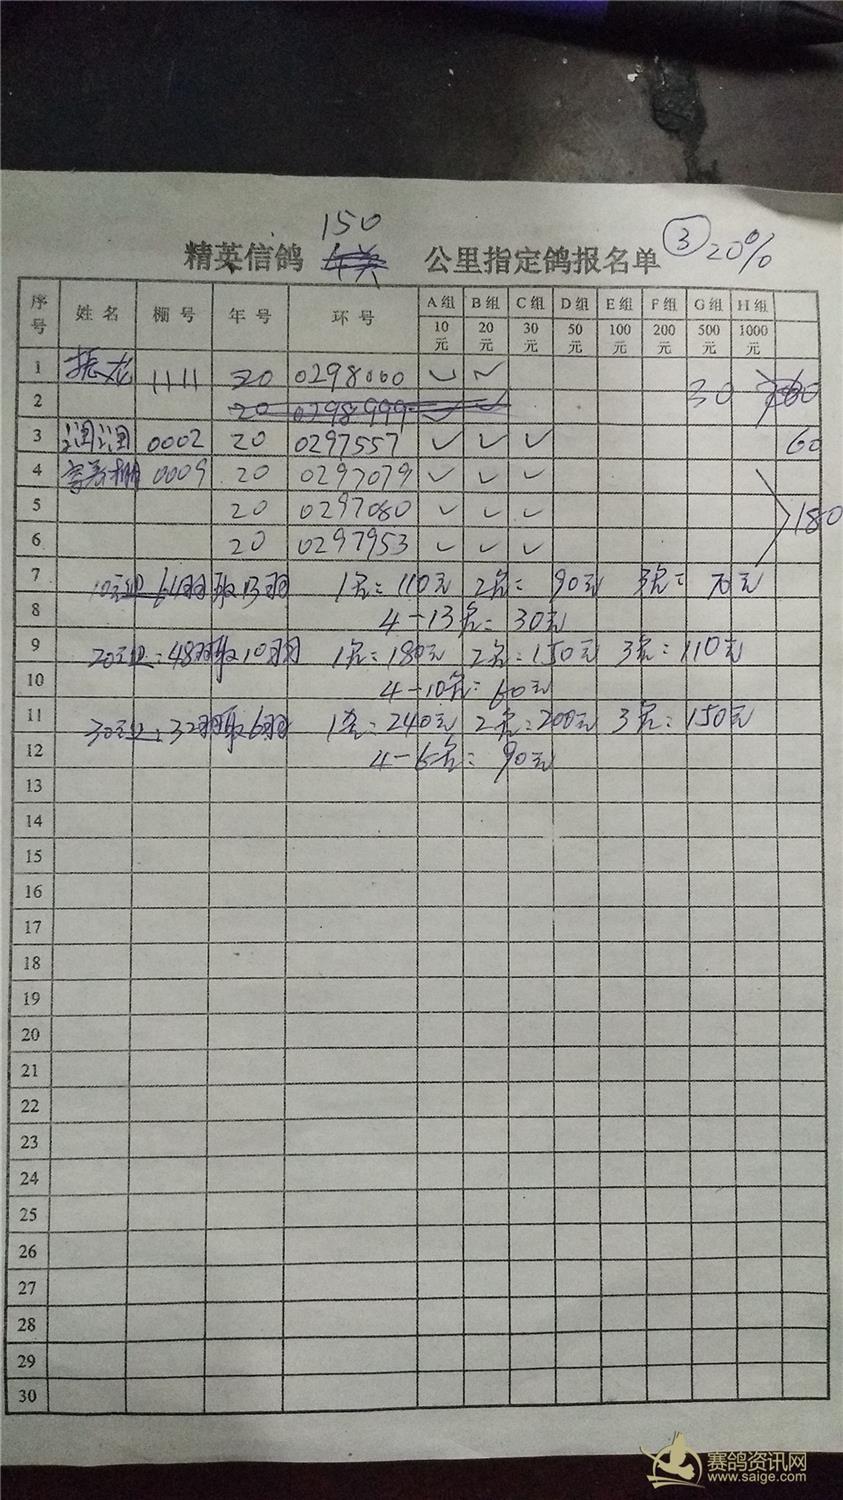 150
精英信鸽 公里指定鸽报名单 ③ 20%
序号 姓名 棚号 年号 环号 A组 B组 C组 D组 E组 F组 G组 H组
10元 20元 30元 50元 100元 200元 500元 1000元
1 振龙 1111 20 0298000 ✓ ✓ 30
2 20 0298999 ✓ ✓
3 润润 0002 20 0297557 ✓ ✓ ✓ 60
4 0009 20 0297079 ✓ ✓ ✓
5 20 0297080 ✓ ✓ ✓ 180
6 20 0297953 ✓ ✓ ✓
7 10元组 61羽取13羽 1名=110元 2名= 90元 3名= 70元
8 4-13名= 30元
9 20元组:48羽取10羽 1名=180元 2名=150元 3名=110元
10 4-10名=60元
11 30元组:32羽取6羽 1名=240元 2名=200元 3名=150元
12 4-6名= 90元
13
14
15
16
17
18
19
20
21
22
23
24
25
26
27
28
29
30
赛鸽资讯网
www.saige.com